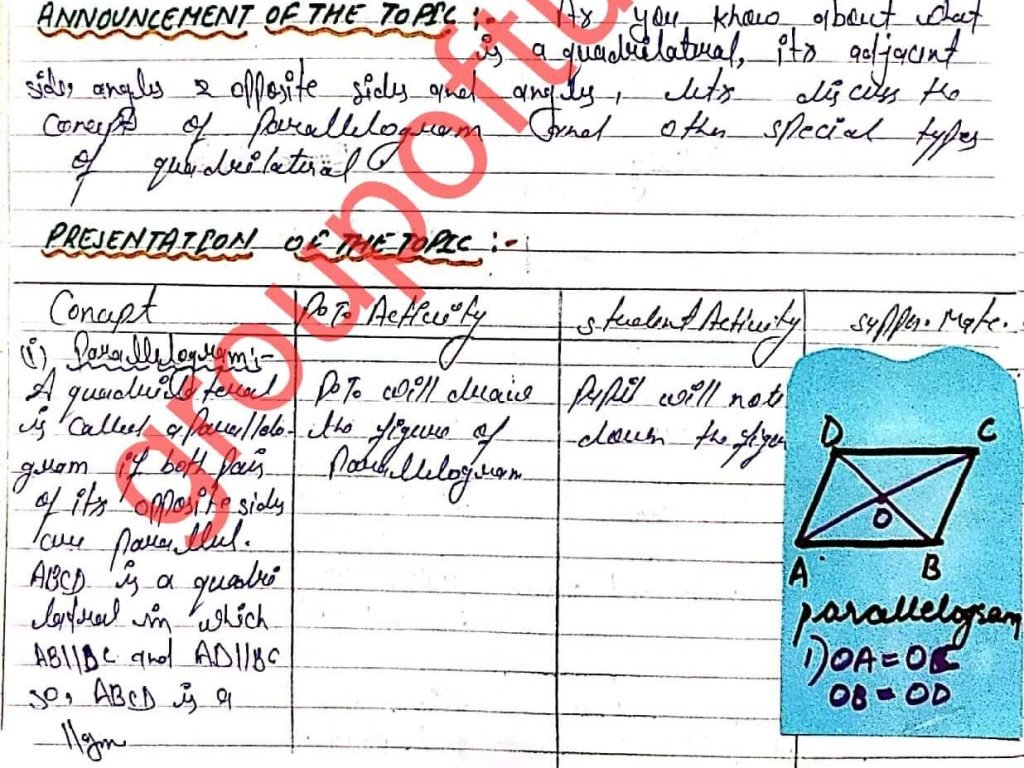 ANNOUNCEMENT OF THE TOPIC :- As you know about what
is a quadrilateral, its adjacent
sides angles & opposite sides and angles, lets discuss the
Concept of parallelogram and other special types
of quadrilateral
PRESENTATION OF THE TOPIC :-
Concept
(i) Parallelogram:-
A quadrilateral
is called a parallelo-
gram if both pairs
of its opposite sides
are parallel.
ABCD is a quadri
lateral in which
AB||BC and AD||BC
so, ABCD is a
||gm
P.T. Activity
P.T. will draw
the figure of
Parallelogram
Student Activity
Pupil will note
down the figur
Suppor. Mate.
D C
O
A B
parallelogram
1) OA = OC
OB = OD
groupoftu